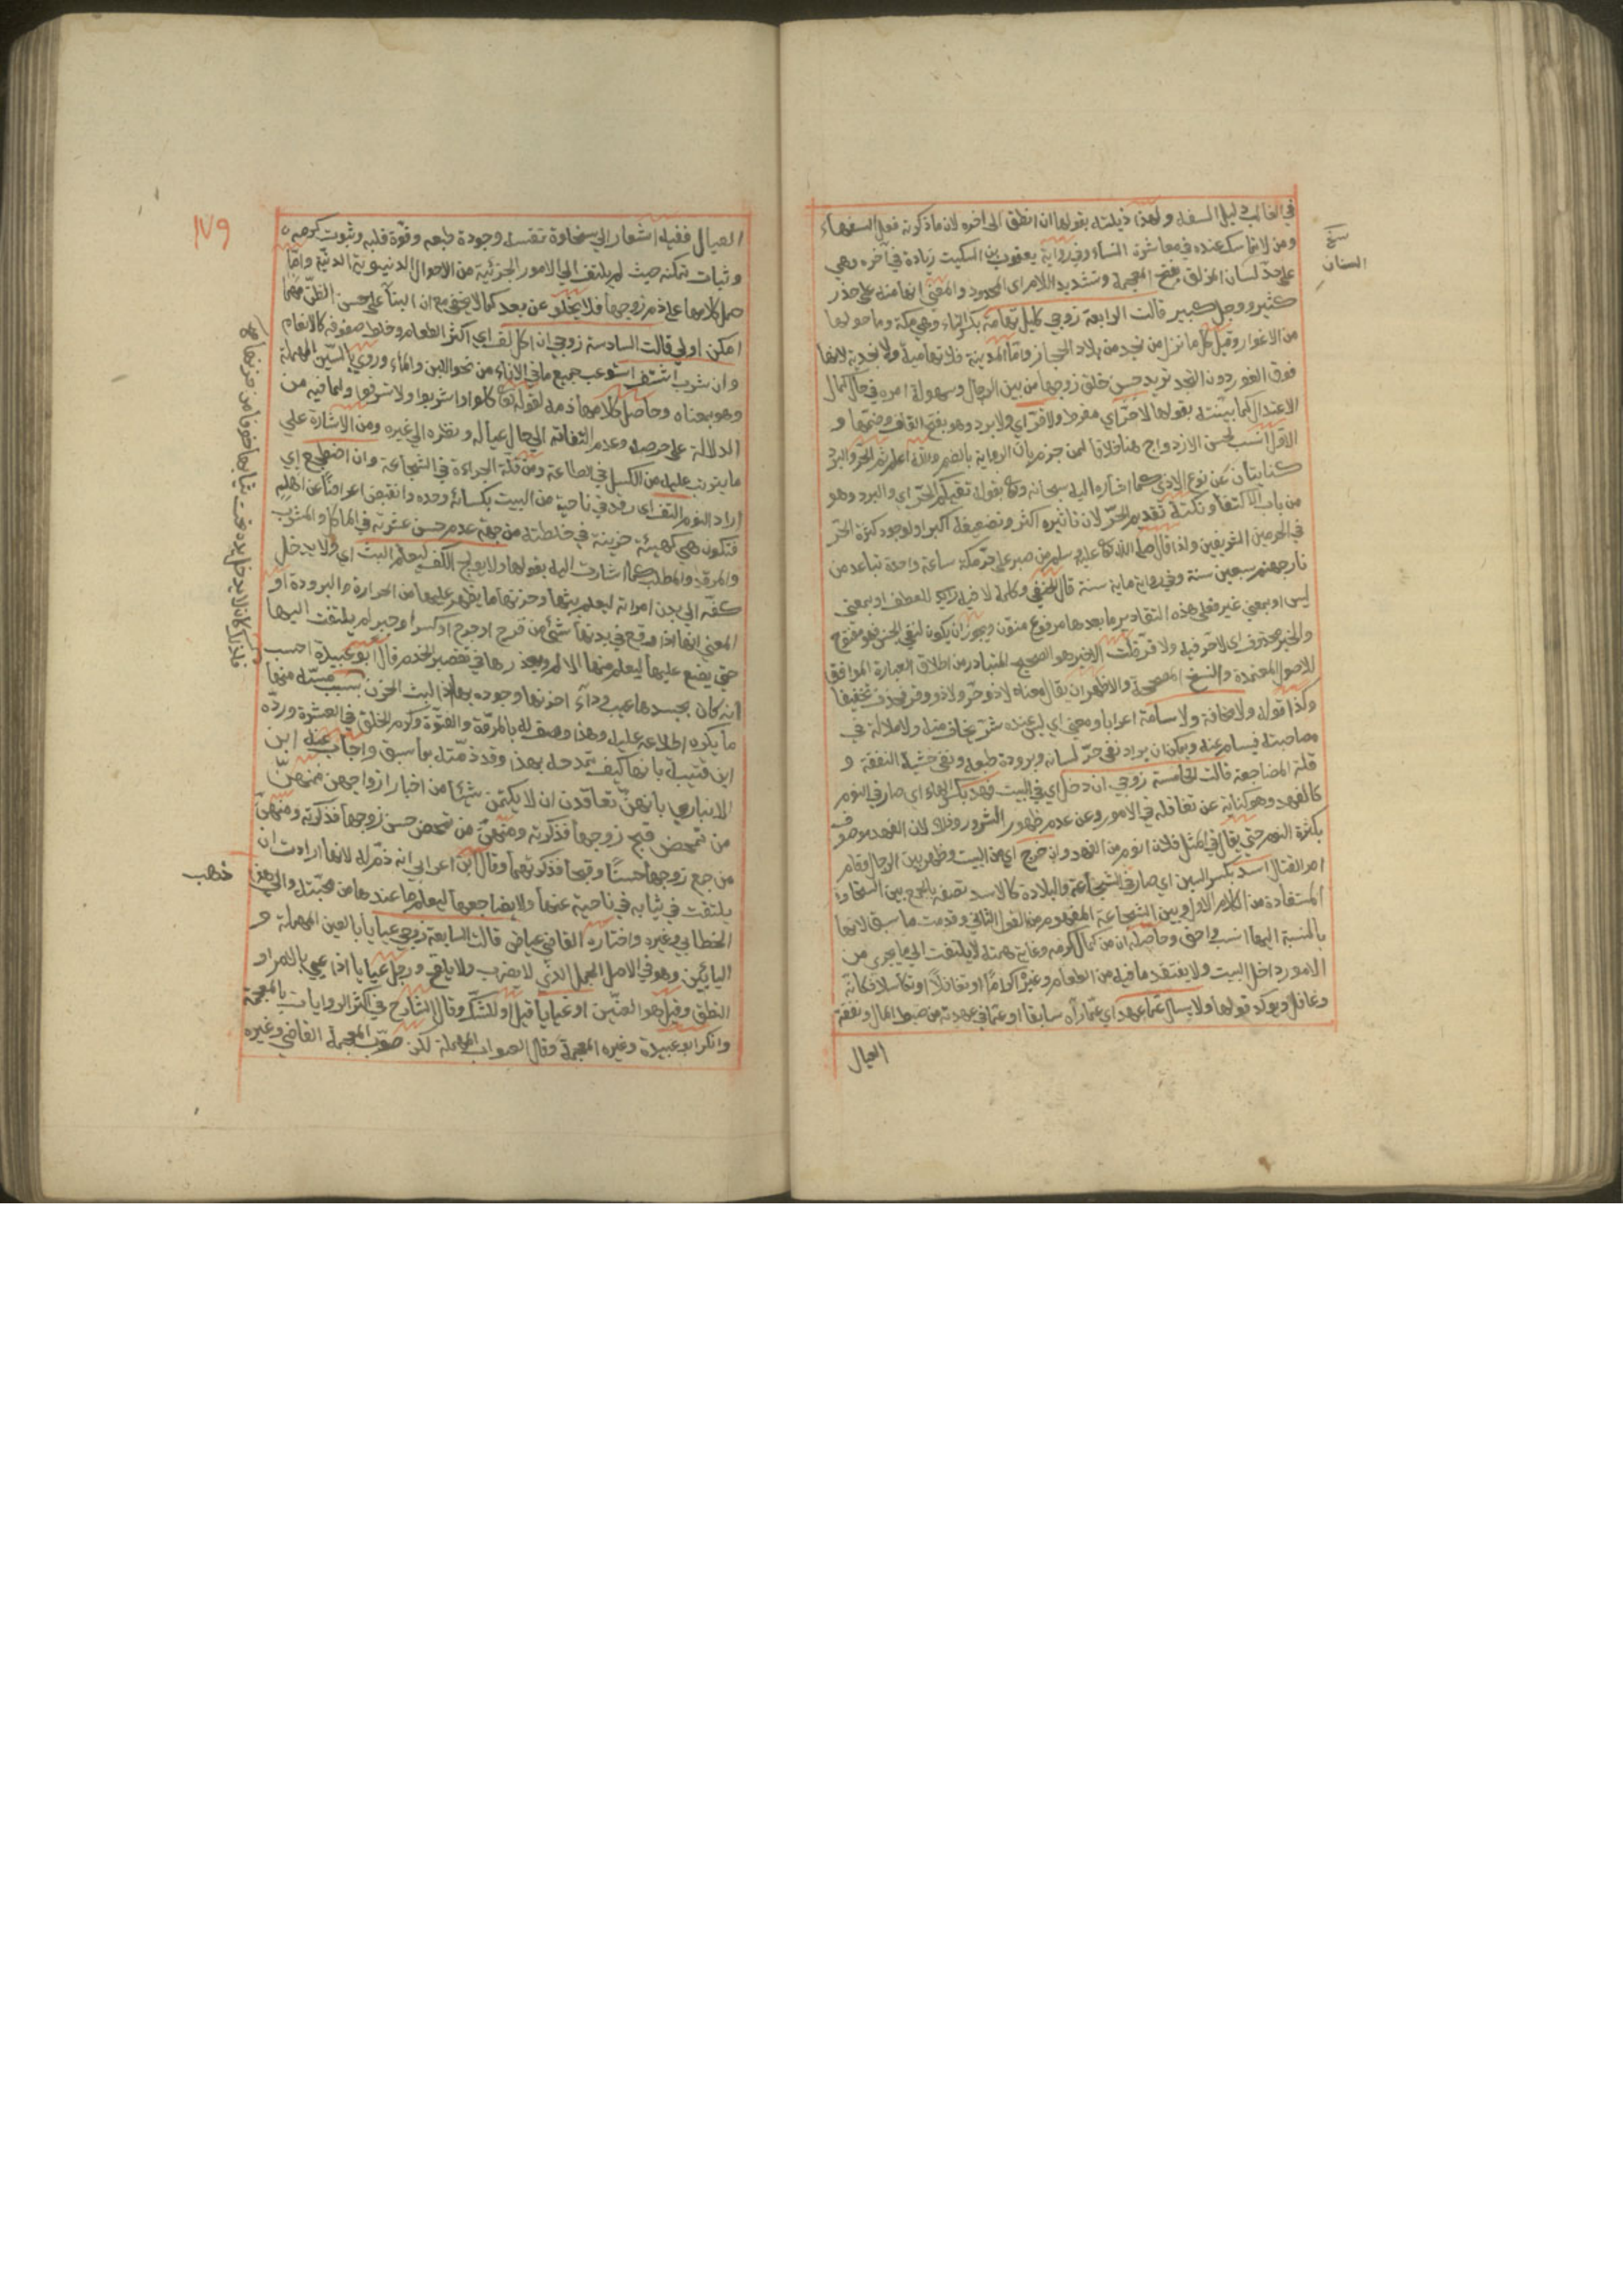 في الغالب دليل السفه ولهذا ذيلته بقولها ان انطق الى اخره لان ما ذكرته فعل السفهاء
ومن لا تماسك عنده في معاشرة النساء وفي رواية يعقوب بن السكيت زيادة في آخره وهي
على حد لسان المزلق بفتح المعجمة وتشديد اللام اي المحدود والمعنى انها منه على حذر
كثير ووجل كبير قالت الرابعة زوجي كليل تهامة بكسر التاء وهي مكة وما حولها
من الاغوار وقيل كل ما نزل من نجد من بلاد الحجاز واما المدينة فلا تهامية ولا نجدية لانها
فوق الغور دون النجد تريد حسن خلق زوجها من بين الرجال وسهولة امره في حال كمال
الاعتدال كما بينته بقولها لا حر اي مفرط ولا قر اي ولا برد وهو بفتح القاف وضمها و
الاول انسب لحسن الازدواج هنا خلافا لمن جزم بان الرواية بالضم والله اعلم ثم الحر والبرد
كنايتان عن نوع الاذى كما اشار اليه سبحانه وتعالى بقوله تقيكم الحر اي والبرد وهو
من باب الاكتفاء ونكتة تقديم الحر لان تاثيره اكثر وتضعيفه اكبر او لوجود كثرة الحر
في الحرمين الشريفين ولذا قال صلى الله تعالى عليه وسلم من صبر على حر مكة ساعة واحدة تباعد من
نار جهنم سبعين سنة وفي رواية ماية سنة قال الحنفي وكلمة لا فيه للعطف او بمعنى
ليس او بمعنى غير فعلى هذه التقادير ما بعدها مرفوع منون ويجوز ان يكون لنفي الجنس فهو مفتوح
والخبر محذوف اي لا حر فيه ولا قر قلت الاخير هو الصحيح المتبادر من اطلاق العبارة الموافق
للاصول المعتمدة والنسخ المصححة والاظهر ان يقال معناه لا ذو حر ولا ذو قر فحذف تخفيفا
وكذا قوله ولا مخافة ولا سآمة اعرابا ومعنى اي ليس عنده شر يخاف منه ولا ملالة في
مصاحبته فيسأم عنه ويمكن ان يراد نفي حر لسانه وبرودة طبعه ونفي خشية النفقة و
قلة المضاجعة قالت الخامسة زوجي ان دخل اي في البيت فهد بكسر الهاء اي صار في النوم
كالفهد وهو كناية عن تغافله في الامور وعن عدم ظهور الشرور وذلك لان الفهد موصوف
بكثرة النوم حتى يقال في المثل فلان انوم من الفهد وان خرج اي من البيت وظهر بين الرجال وقام
امر القتال اسد بكسر السين اي صار في الشجاعة والبلادة كالاسد تصفه بالجمع بين السخاوة
المستفادة من الكلام الاول وبين الشجاعة المفهومة من القول الثاني وقدمت ما سبق لانها
بالنسبة اليها انسب واحق وحاصله ان من كمال كرمه وغاية همته لا يلتفت الى ما يجري من
الامور داخل البيت ولا يفتقد ما فيه من الطعام وغيره اكراما او تغافلا او تكاسلا فكانه
وغافل ويؤكد قولها ولا يسال عما عهد اي عما رآه سابقا او عما في عهدته من ضبط المال ونفقة
العيال
العيال ففيه اشعار الى سخاوة نفسه وجودة طبعه وقوة قلبه وثبوت كرمه
وثبات تمكنه حيث لم يلتفت الى الامور الجزئية من الاحوال الدنيوية الدنية واما
حمل كلامها على ذم زوجها فلا يخلو عن بعد كما لا يخفى مع ان البناء على حسن الظن مهما
امكن اولى قالت السادسة زوجي ان اكل لف اي اكثر الطعام وخلط صنوفه كالانعام
وان شرب اشتف استوعب جميع ما في الاناء من نحو اللبن والماء وروي بالسين المهملة
وهو بمعناه وحاصل كلامها ذمه لقوله تعالى كلوا واشربوا ولا تسرفوا ولما فيه من
الدلالة على حرصه وعدم التفاته الى حال عياله ونظره الى غيره ومن الاشارة على
ما يترتب عليه من الكسل في الطاعة ومن قلة الجراءة في الشجاعة وان اضطجع اي
اراد النوم التف اي رقد في ناحية من البيت بكسائه وحده وانقبض اعراضا عن اهله
فتكون هي كهيئة حزينة في خلطته من جهة عدم حسن عشرته في الماكل والمشرب
والمرقد والمطلب كما اشارت اليه بقولها ولا يولج الكف ليعلم البث اي ولا يدخل
كفه الى بدن امراته ليعلم بثها وحزنها ما يظهر عليها من الحرارة والبرودة او
المعنى انها اذا وقع في بدنها شيء من قرح او جرح او كسر او جبر لم يلتفت اليها
حتى يضع عليها ليعلم منها الالم ويعذرها في تقصير الخدم قال ابو عبيدة احسب
انه كان بجسدها عيب وداء احزنها وجوده بها اذ البث الحزن بسبب مسته منها
ما يكره اطلاعه عليه وهذا وصف له بالمروة والفتوة وكرم الخلق في العشرة ورده
ابن قتيبة بانها كيف تمدحه بهذا وقد ذمته بما سبق واجاب عنه ابن
الانباري بانهن تعاقدن ان لا يكتمن شيئا من اخبار ازواجهن فمنهن
من تمحض قبح زوجها فذكرته ومنهن من تمحض حسن زوجها فذكرته ومنهن
من جمع زوجها حسنا وقبحا فذكرتهما وقال ابن اعرابي انه ذم له لانها ارادت ان
يلتفت في ثيابه في ناحية عنها ولا يضاجعها ليعلم ما عندها من محبته والى هذا ذهب
الخطابي وغيره واختاره القاضي عياض قالت السابعة زوجي عياياء بالعين المهملة و
اليائين وهو في الاصل الجمل الذي لا يضرب ولا يلقح ورجل عياياء اذا عيي بالامر او
النطق وقيل هو العنين او غياياء قيل او للشك وقال الشارح في اكثر الروايات بالمعجمة
وانكر ابو عبيدة وغيره المعجمة وقال الصواب المهملة لكن صوب المعجمة القاضي وغيره
١٧٩
السنان